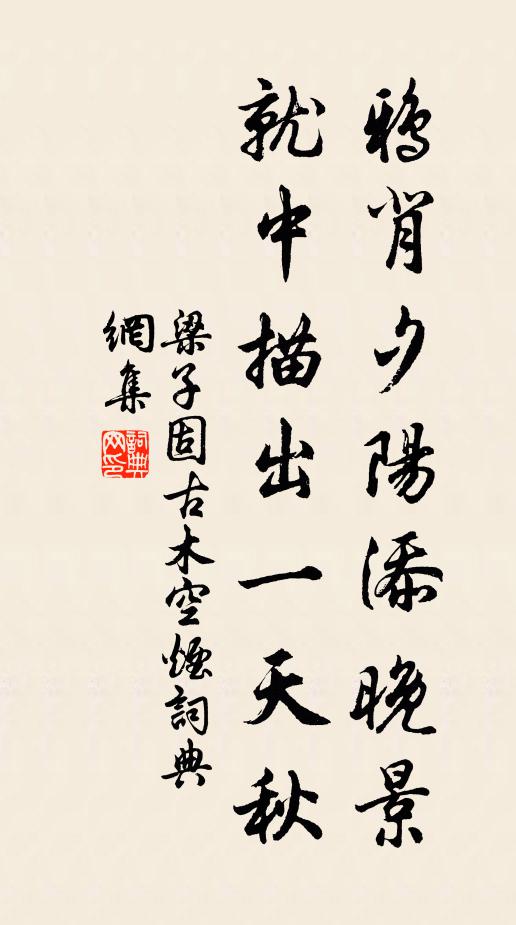 鴉背夕陽添晚景
就中描出一天秋
梁子固古木空煙詞典
網集
詞典網印